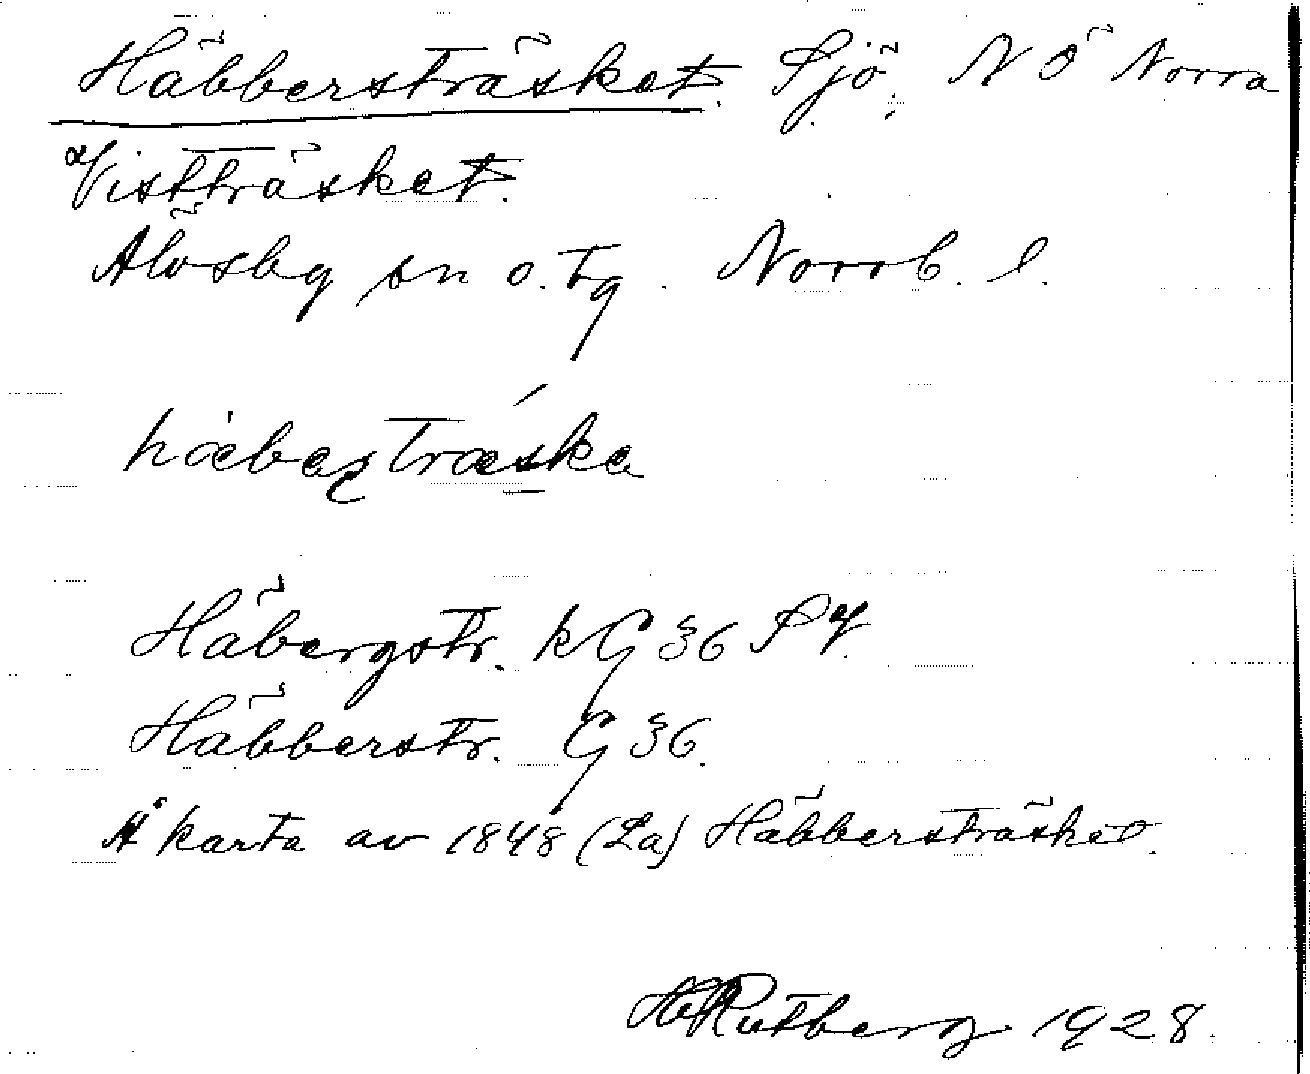 Häbbersträsket. Sjö; NÖ Norra
Vistträsket.
Älvsby sn o. tg. Norrb. l.
hæbaʂtræska
Häbergstr. k G 36 SV.
Häbberstr. G 36.
Å karta av 1848 (La) Häbbersträsket.
H Rutberg 1928.